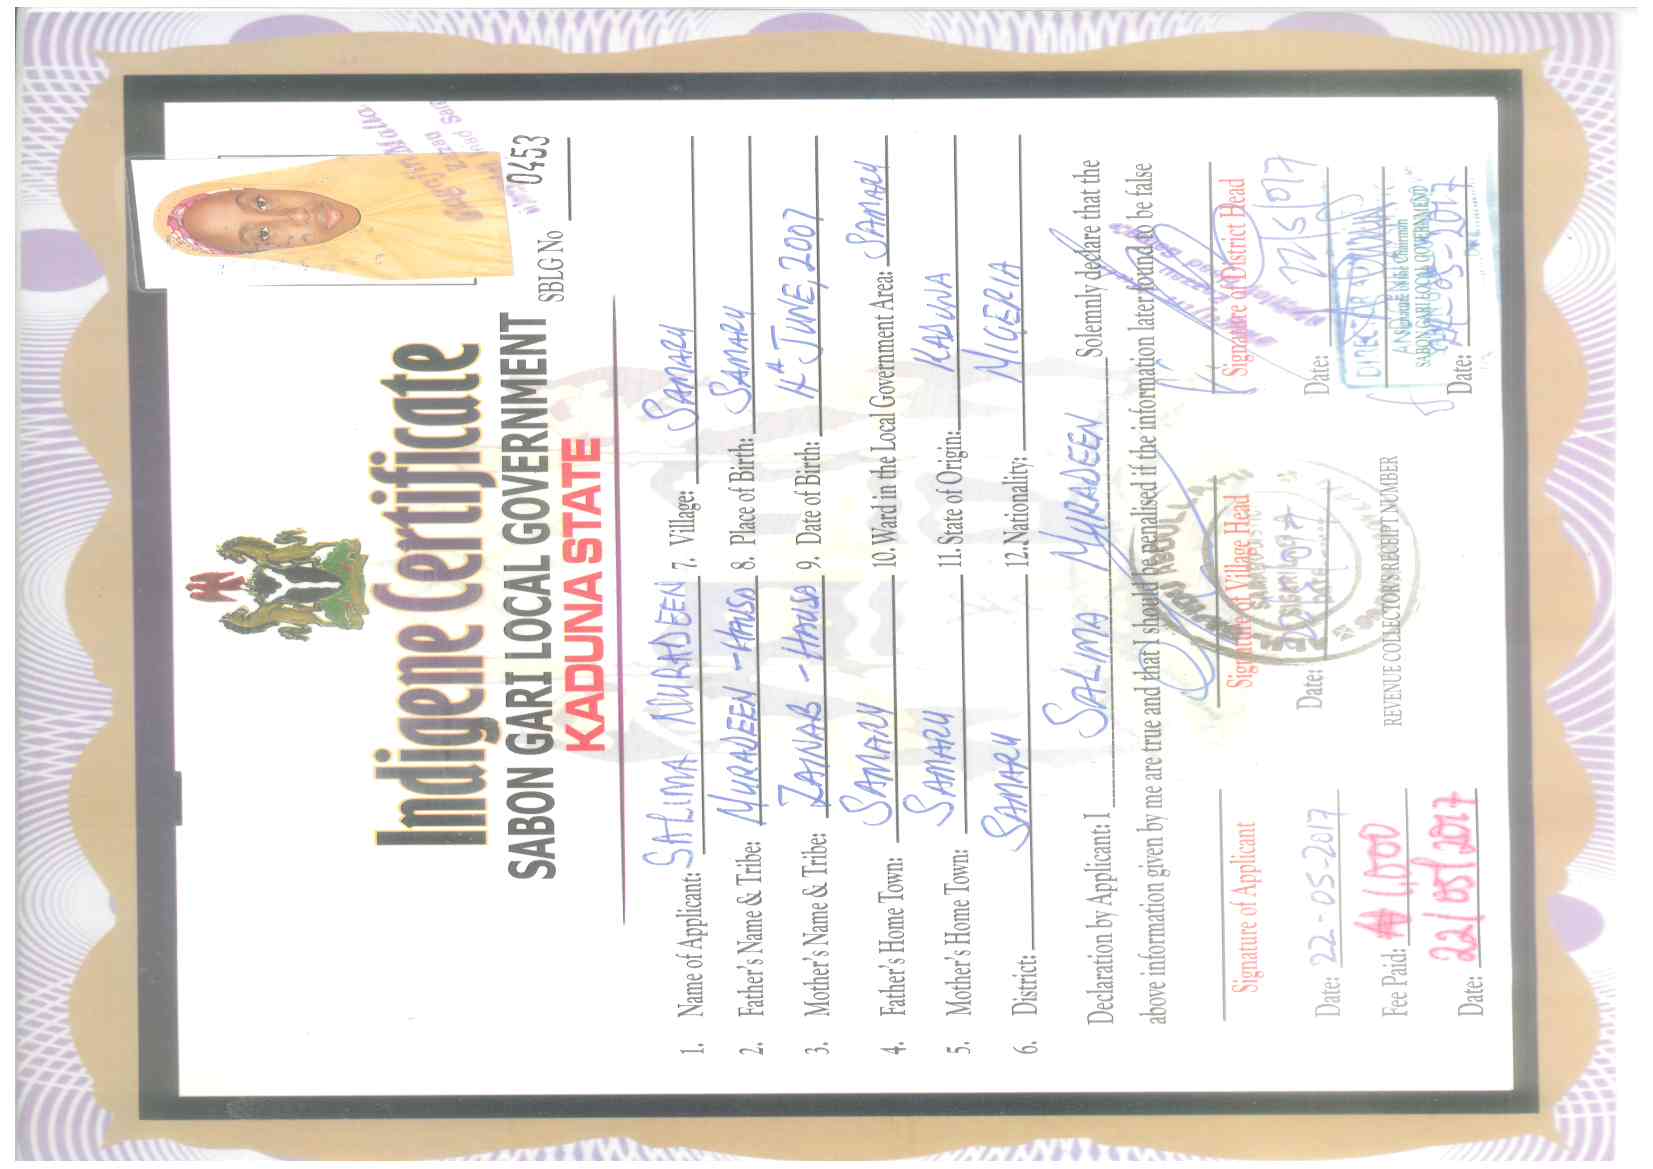 Indigene Certificate
SABON GARI LOCAL GOVERNMENT
KADUNA STATE
SBLG No 0453
1. Name of Applicant: SALIMA NURADEEN 7. Village: SAMARU
2. Father's Name & Tribe: NURADEEN - HAUSA 8. Place of Birth: SAMARU
3. Mother's Name & Tribe: ZAINAB - HAUSA 9. Date of Birth: 4th JUNE, 2007
4. Father's Home Town: SAMARU 10. Ward in the Local Government Area: SAMARU
5. Mother's Home Town: SAMARU 11. State of Origin: KADUNA
6. District: SAMARU 12. Nationality: NIGERIA
Declaration by Applicant: I SALIMA NURADEEN Solemnly declare that the
above information given by me are true and that I should be penalised if the information later found to be false
Signature of Applicant Signature of Village Head Signature of District Head
Date: 22-05-2017 Date: Date: 22/5/017
Fee Paid: ₦1,000 REVENUE COLLECTOR'S RECEIPT NUMBER
SABON GARI LOCAL GOVERNMENT
Date: 22/05/2017 Date: